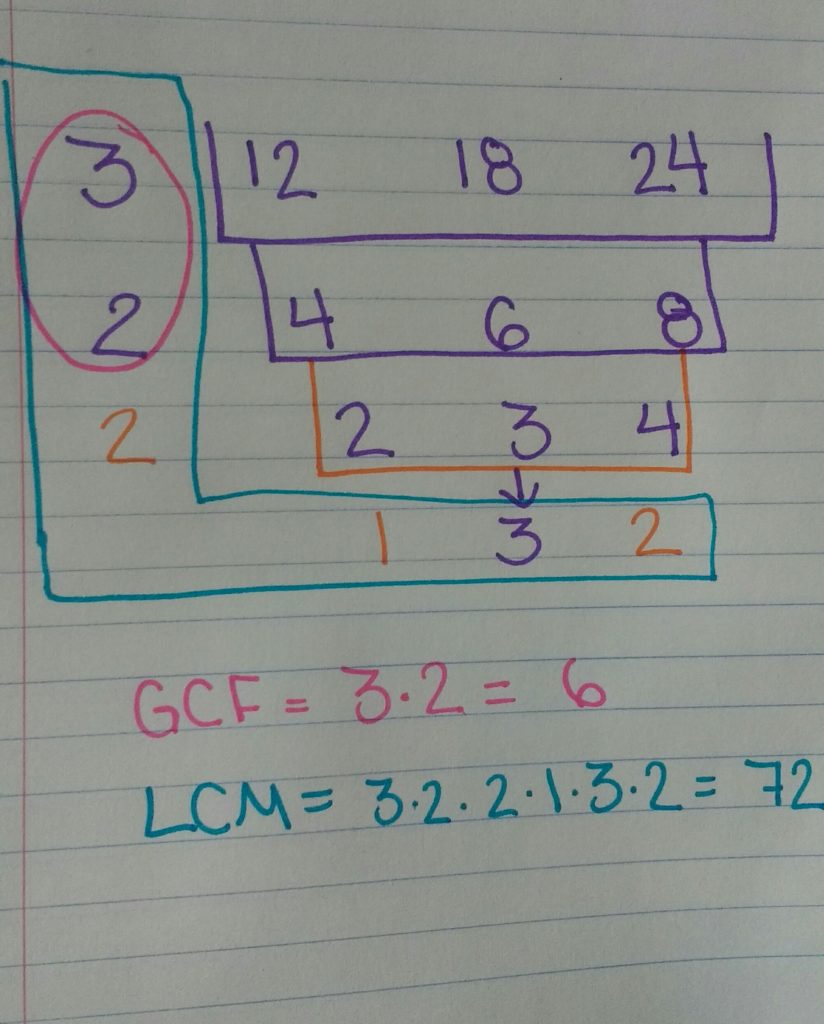 3 12 18 24
2 4 6 8
2 2 3 4
↓
1 3 2
GCF = 3·2 = 6
LCM = 3·2·2·1·3·2 = 72